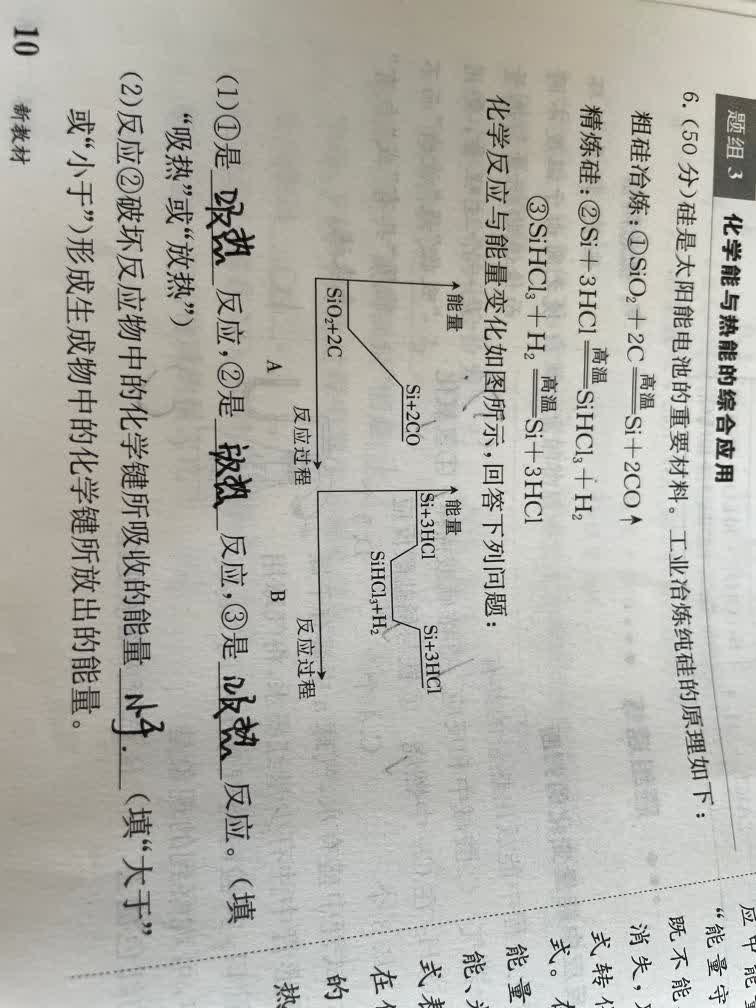 题组3 化学能与热能的综合应用
6.(50分)硅是太阳能电池的重要材料。工业冶炼纯硅的原理如下:
粗硅冶炼:①SiO₂+2C 高温 Si+2CO↑
精炼硅:②Si+3HCl 高温 SiHCl₃+H₂
③SiHCl₃+H₂ 高温 Si+3HCl
化学反应与能量变化如图所示,回答下列问题:
能量
Si+2CO
SiO₂+2C
反应过程
A
能量
Si+3HCl
Si+3HCl
SiHCl₃+H₂
反应过程
B
(1)①是 吸热 反应,②是 放热 反应,③是 吸热 反应。(填
“吸热”或“放热”)
(2)反应②破坏反应物中的化学键所吸收的能量 小于. (填“大于”
或“小于”)形成生成物中的化学键所放出的能量。
10 新教材
“能量守
既不能
消失,
式转
式。
能量
能、
式
在
的
热